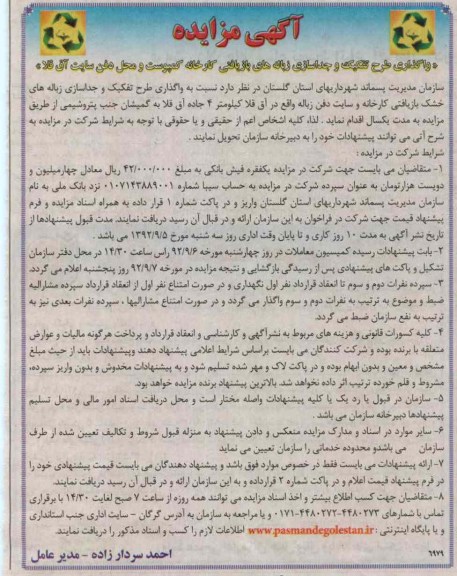 آگهی مزایده
« واگذاری طرح تفکیک و جداسازی زباله های بازیافتی کارخانه کمپوست و محل دفن سایت آق قلا »
سازمان مدیریت پسماند شهرداریهای استان گلستان در نظر دارد نسبت به واگذاری طرح تفکیک و جداسازی زباله های
خشک بازیافتی کارخانه و سایت دفن زباله واقع در آق قلا کیلومتر ۴ جاده آق قلا به گمیشان جنب پتروشیمی از طریق
مزایده به مدت یکسال اقدام نماید . لذا، کلیه اشخاص اعم از حقیقی و یا حقوقی با توجه به شرایط شرکت در مزایده به
شرح آتی می توانند پیشنهادات خود را به دبیرخانه سازمان تحویل نمایند .
شرایط شرکت در مزایده :
۱- متقاضیان می بایست جهت شرکت در مزایده یکفقره فیش بانکی به مبلغ ۴۲/۰۰۰/۰۰۰ ریال معادل چهارمیلیون و
دویست هزارتومان به عنوان سپرده شرکت در مزایده به حساب سیبا شماره ۰۱۰۷۱۴۳۸۸۹۰۰۱ نزد بانک ملی به نام
سازمان مدیریت پسماند شهرداریهای استان گلستان واریز و در پاکت شماره ۱ قرار داده به همراه اسناد مزایده و فرم
پیشنهاد قیمت جهت شرکت در فراخوان به این سازمان ارائه و در قبال آن رسید دریافت نمایند. مدت قبول پیشنهادها از
تاریخ نشر آگهی به مدت ۱۰ روز کاری و تا پایان وقت اداری روز سه شنبه مورخ ۱۳۹۲/۹/۵ می باشد .
۲- بابت پیشنهادات رسیده کمیسیون معاملات در روز چهارشنبه مورخه ۹۲/۹/۶ راس ساعت ۱۴/۳۰ در محل دفتر سازمان
تشکیل و پاکت های پیشنهادی پس از رسیدگی بازگشایی و نتیجه مزایده در مورخه ۹۲/۹/۷ روز پنجشنبه اعلام می گردد.
۳- سپرده نفرات دوم و سوم تا انعقاد قرارداد نفر اول نگهداری و در صورت امتناع نفر اول از انعقاد قرارداد سپرده مشارالیه
ضبط و موضوع به ترتیب به نفرات دوم و سوم واگذار می گردد و در صورت امتناع مشارالیها ، سپرده نفرات بعدی نیز به
ترتیب به نفع سازمان ضبط می گردد.
۴- کلیه کسورات قانونی و هزینه های مربوط به نشرآگهی و کارشناسی و انعقاد قرارداد و پرداخت هرگونه مالیات و عوارض
متعلقه با برنده بوده و شرکت کنندگان می بایست براساس شرایط اعلامی پیشنهاد دهند وپیشنهادات باید از حیث مبلغ
مشخص و معین و بدون ابهام بوده و در پاکت لاک و مهر شده تسلیم شود و به پیشنهادات مخدوش و بدون واریز سپرده،
مشروط و قلم خورده ترتیب اثر داده نخواهد شد. بالاترین پیشنهاد برنده مزایده خواهد بود.
۵- سازمان در قبول یا رد یک یا کلیه پیشنهادات واصله مختار است و محل دریافت اسناد امور مالی و محل تسلیم
پیشنهادها دبیرخانه سازمان می باشد .
۶- سایر موارد در اسناد و مدارک مزایده منعکس و دادن پیشنهاد به منزله قبول شروط و تکالیف تعیین شده از طرف
سازمان می باشدو محدوده خدماتی را سازمان تعیین می نماید
۷- ارائه پیشنهادات می بایست فقط در خصوص موارد فوق باشد و پیشنهاد دهندگان می بایست قیمت پیشنهادی خود را
در فرم پیشنهاد قیمت اعلام و در پاکت شماره ۲ قرارداده و به این سازمان ارائه و در قبال آن رسید دریافت نمایند.
۸- متقاضیان جهت کسب اطلاع بیشتر و اخذ اسناد مزایده می توانند همه روزه از ساعت ۷ صبح لغایت ۱۴/۳۰ با برقراری
تماس با شمارهای ۴۴۸۰۲۷۳-۴۴۸۰۲۷۲-۰۱۷۱ و یا مراجعه به سازمان به آدرس گرگان - سایت اداری جنب استانداری
و یا پایگاه اینترنتی : www.pasmandegolestan.ir اطلاعات لازم را کسب و اسناد مذکور را دریافت نمایند.
احمد سردار زاده - مدیر عامل
۶۹۷۹